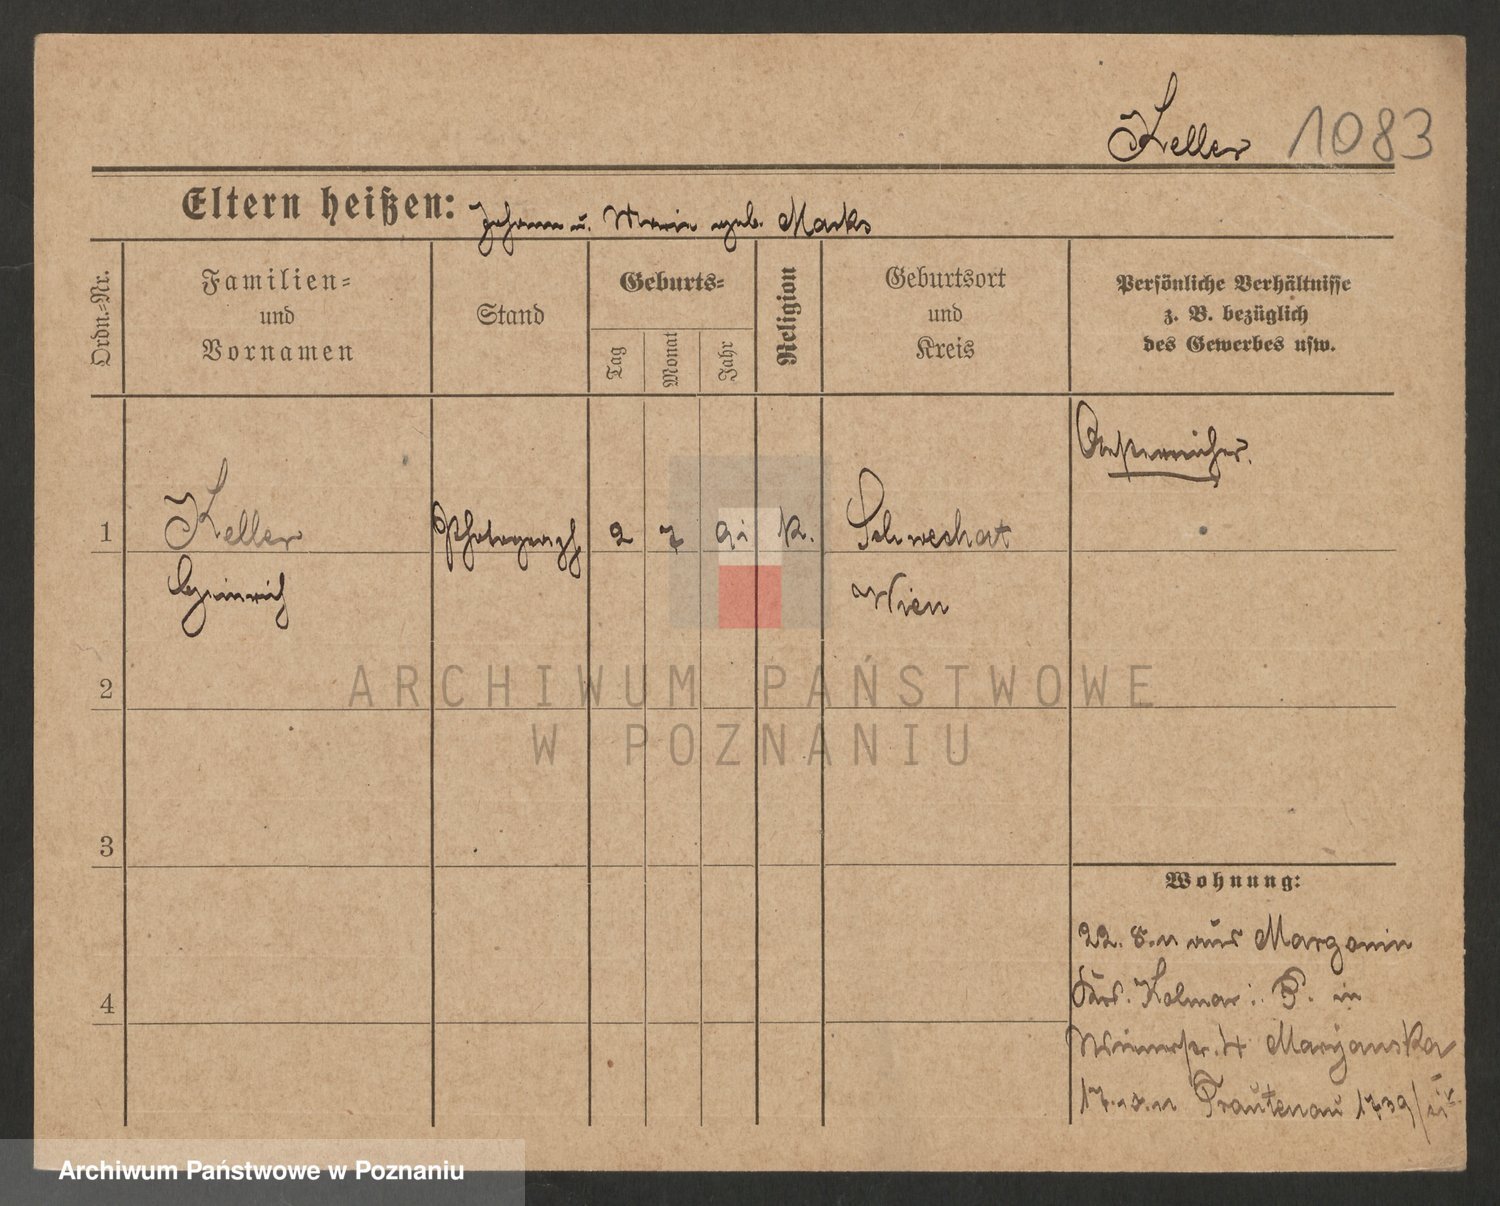 Keller 1083
Eltern heißen: Johann u. Maria geb. Marks
Ordn.-Nr.
Familien-
und
Vornamen
Stand
Geburts-
Tag
Monat
Jahr
Religion
Geburtsort
und
Kreis
Persönliche Verhältnisse
z. B. bezüglich
des Gewerbes usw.
Oesterreicher.
1 Keller Photograph 2 7 91 k. Schwechat
Heinrich Wien
2
3
4
Wohnung:
22. 8. 11 aus Margonin
Kolmar i. P. in
Wienerstr. 4 Maryanska
Trautenau
ARCHIWUM PAŃSTWOWE
W POZNANIU
Archiwum Państwowe w Poznaniu